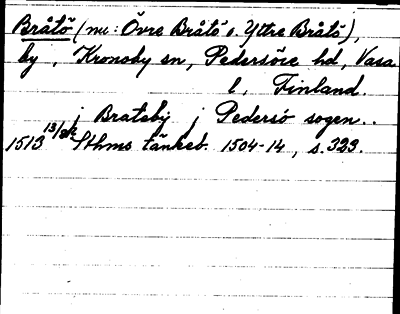 Bråtö (nu: Övre Bråtö o. Yttre Bråtö),
by, Kronoby sn, Pedersöre hd, Vasa
l, Finland.
j Bratsby j Pedersö sogen..
1513 Sthms tänkeb. 1504-14, s. 323.